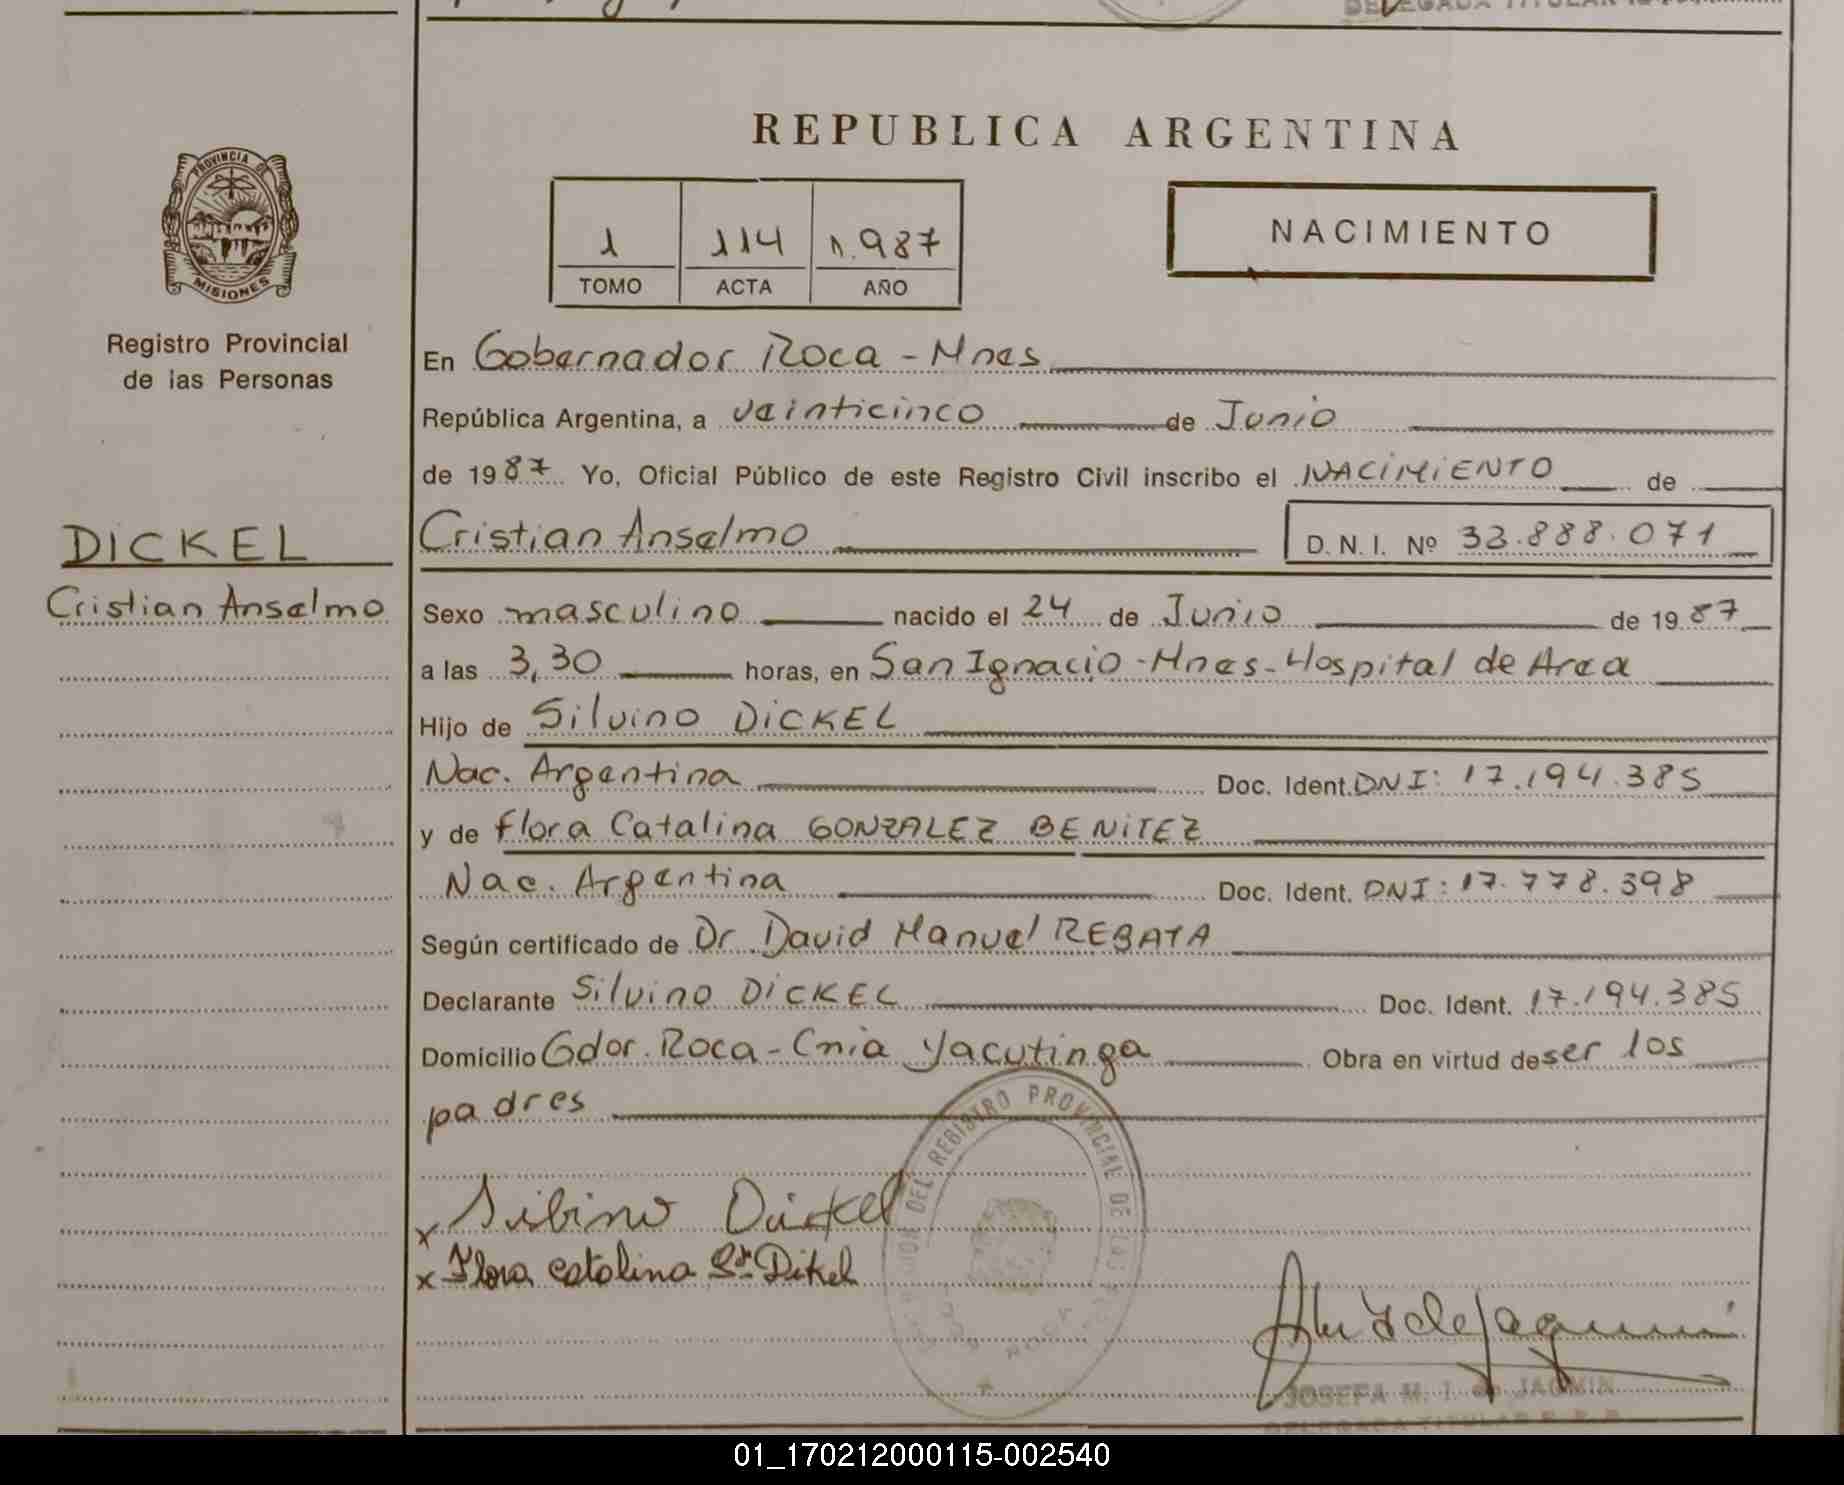 DELEGADA TITULAR
REPUBLICA ARGENTINA
PROVINCIA DE
MISIONES
1 114 1.987
TOMO ACTA AÑO
NACIMIENTO
Registro Provincial
de las Personas
En Gobernador Roca - Mnes
República Argentina, a veinticinco de Junio
de 1987 Yo, Oficial Público de este Registro Civil inscribo el NACIMIENTO de
DICKEL
Cristian Anselmo D.N.I. Nº 33.888.071
Cristian Anselmo
Sexo masculino nacido el 24 de Junio de 1987
a las 3,30 horas, en San Ignacio - Mnes - Hospital de Area
Hijo de Silvino DICKEL
Nac. Argentina Doc. Ident. DNI: 17.194.385
y de Flora Catalina GONZALEZ BENITEZ
Nac. Argentina Doc. Ident. DNI: 17.778.398
Según certificado de Dr David Manuel REBATA
Declarante Silvino DICKEL Doc. Ident. 17.194.385
Domicilio Gdor. Roca - Cnia Yacutinga Obra en virtud de ser los
padres
DEL REGISTRO PROVINCIAL DE LAS
ROCA
x Silbino Dickel
x Flora catalina Dikel
JOSEFA M. I. de JACMIN
DELEGADA TITULAR R.P.P.
01_170212000115-002540